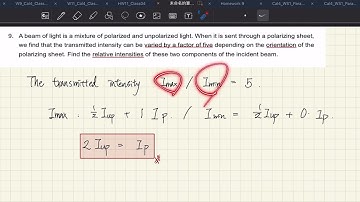 HW11_Class04
Homework 9
9. A beam of light is a mixture of polarized and unpolarized light. When it is sent through a polarizing sheet,
we find that the transmitted intensity can be varied by a factor of five depending on the orientation of the
polarizing sheet. Find the relative intensities of these two components of the incident beam.
The transmitted intensity Imax / Imin = 5.
Imax : ½ Iup + 1 Ip. / Imin = ½ Iup + 0. Ip.
2 Iup = Ip